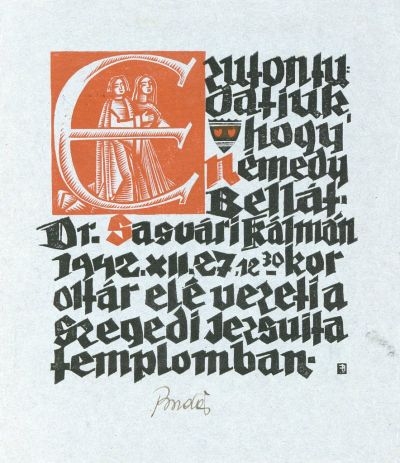 Ezuton tu=
datjuk
hogy
Nemedy
Bellát
Dr. Sasvári Kálmán
1942.XII.27, 12 30 kor
oltár elé vezeti a
szegedi jezsuita
templomban.